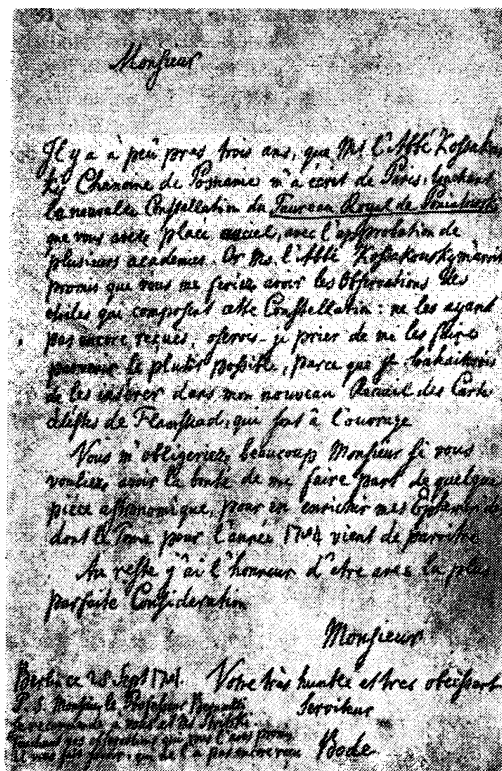 Monsieur
Il y a à peu pres trois ans, que Mr l'Abbé Kossakow
ky Chanoine de Posnanie m'a ecrit de Paris, touchant
la nouvelle Constellation du Taureau Royal de Poniatowski
que vous avez placé au ciel, avec l'approbation de
plusieurs academies. Or Mr. l'Abbé Kossakowsky m'avoit
promis que vous me feriez avoir les Observations des
etoiles qui composent cette Constellation: ne les ayant
pas encore reçues, oserois-je prier de me les faire
parvenir le plutôt possible, parce que je souhaiterois
de les inserer dans mon nouveau Recueil des Cartes
celestes de Flamstead, qui sont à l'ouvrage
Vous m'obligeriez beaucoup Monsieur si vous
vouliez avoir la bonté de me faire part de quelque
pièce astronomique, pour en enrichir mes Ephemerides
dont le Tome pour l'année 1784 vient de paroitre
Au reste j'ai l'honneur d'etre avec la plus
parfaite Consideration
Monsieur
Berlin ce 28 Sept 1781. Votre très humble et tres obeissant
Serviteur
P. S. Monsieur le Professeur Bernoulli
se recommande à vous
Bode